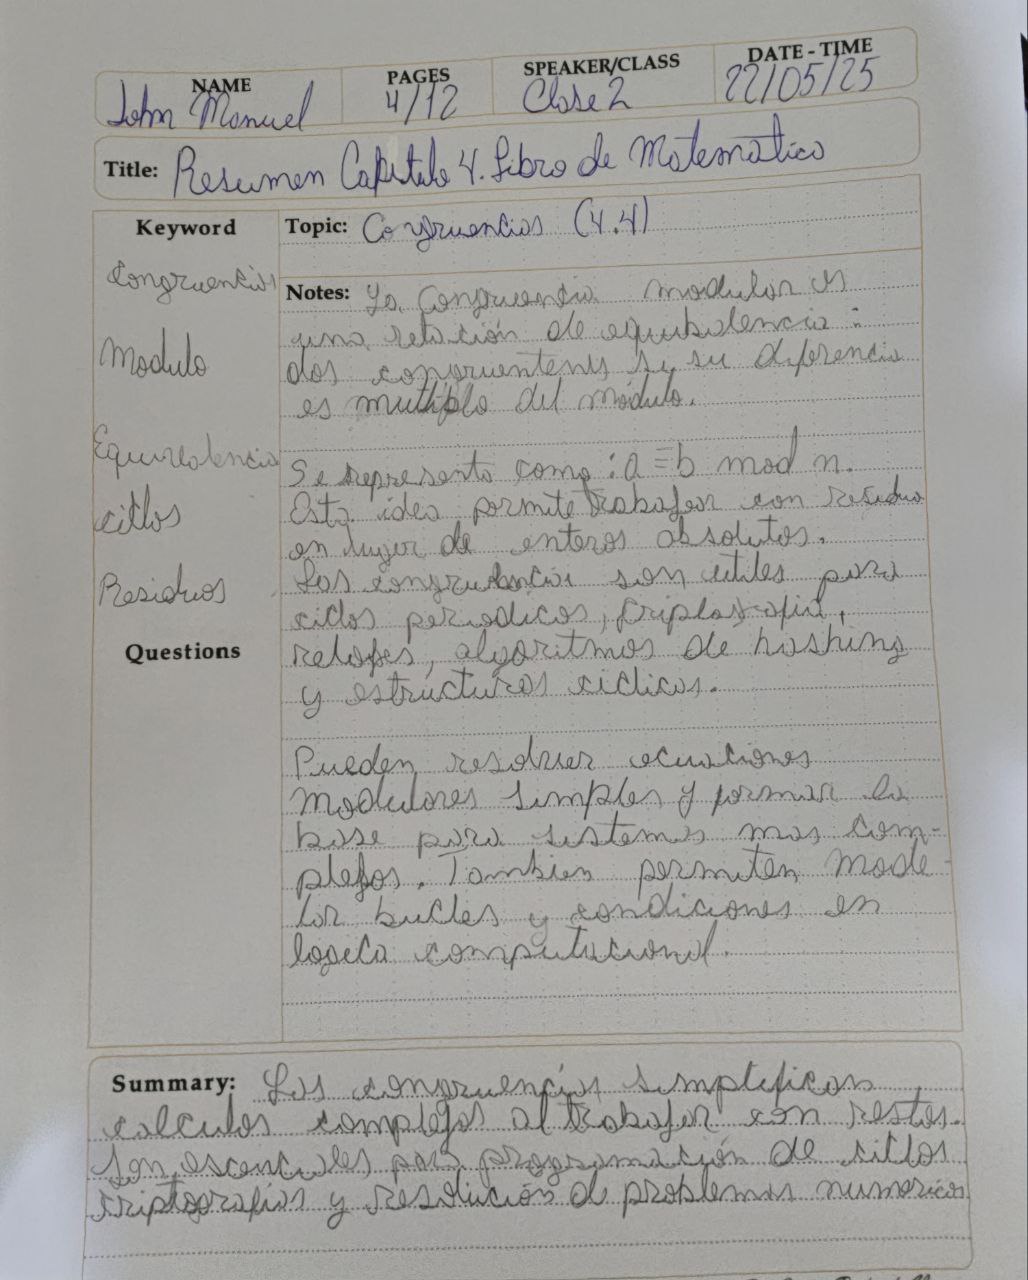 NAME PAGES SPEAKER/CLASS DATE - TIME
John Manuel 4/12 Clase 2 22/05/25
Title: Resumen Capitulo 4. Libro de Matematica
Keyword
Congruencias
Modulo
Equivalencia
ciclos
Residuos
Questions
Topic: Congruencias (4.4)
Notes: La Congruencia modular es
una relación de equibalencia:
dos congruentens si su diferencia
es multiplo del módulo.
Se representa como: a ≡ b mod n.
Esta idea permite trabajar con residuo
en lugar de enteros absolutos.
Las congruencias son utiles para
ciclos periodicos, criptografia,
relojes, algoritmos de hashing
y estructuras ciclicas.
Pueden resolver ecuaciones
modulares simples y formar la
base para sistemas mas com-
plejos. Tambien permiten mode-
lar bucles y condiciones en
logica computacional.
Summary: Las congruencias simplifican
calculos complejos al trabajar con restos.
Son escenciales para programación de ciclos
criptografias y resolución d problemas numericos